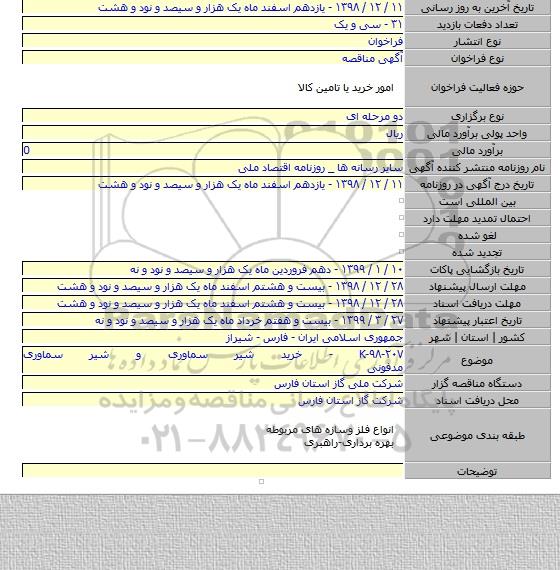 تاریخ آخرین به روز رسانی ۱۱ / ۱۲ / ۱۳۹۸ - یازدهم اسفند ماه یک هزار و سیصد و نود و هشت
تعداد دفعات بازدید ۳۱ - سی و یک
نوع انتشار فراخوان
نوع فراخوان آگهی مناقصه
حوزه فعالیت فراخوان امور خرید یا تامین کالا
نوع برگزاری دو مرحله ای
واحد پولی برآورد مالی ریال
برآورد مالی 0
نام روزنامه منتشر کننده آگهی سایر رسانه ها _ روزنامه اقتصاد ملی
تاریخ درج آگهی در روزنامه ۱۱ / ۱۲ / ۱۳۹۸ - یازدهم اسفند ماه یک هزار و سیصد و نود و هشت
بین المللی است
احتمال تمدید مهلت دارد
لغو شده
تجدید شده
تاریخ بازگشایی پاکات ۱۰ / ۱ / ۱۳۹۹ - دهم فروردین ماه یک هزار و سیصد و نود و نه
مهلت ارسال پیشنهاد ۲۸ / ۱۲ / ۱۳۹۸ - بیست و هشتم اسفند ماه یک هزار و سیصد و نود و هشت
مهلت دریافت اسناد ۲۸ / ۱۲ / ۱۳۹۸ - بیست و هشتم اسفند ماه یک هزار و سیصد و نود و هشت
تاریخ اعتبار پیشنهاد ۲۷ / ۳ / ۱۳۹۹ - بیست و هفتم خرداد ماه یک هزار و سیصد و نود و نه
کشور | استان | شهر جمهوری اسلامی ایران - فارس - شیراز
موضوع K-۹۸-۲۰۷ - خرید شیر سماوری و شیر سماوری
مدفونی
دستگاه مناقصه گزار شرکت ملی گاز استان فارس
محل دریافت اسناد شرکت گاز استان فارس
طبقه بندی موضوعی انواع فلز وسازه های مربوطه
بهره برداری-راهبری
توضیحات